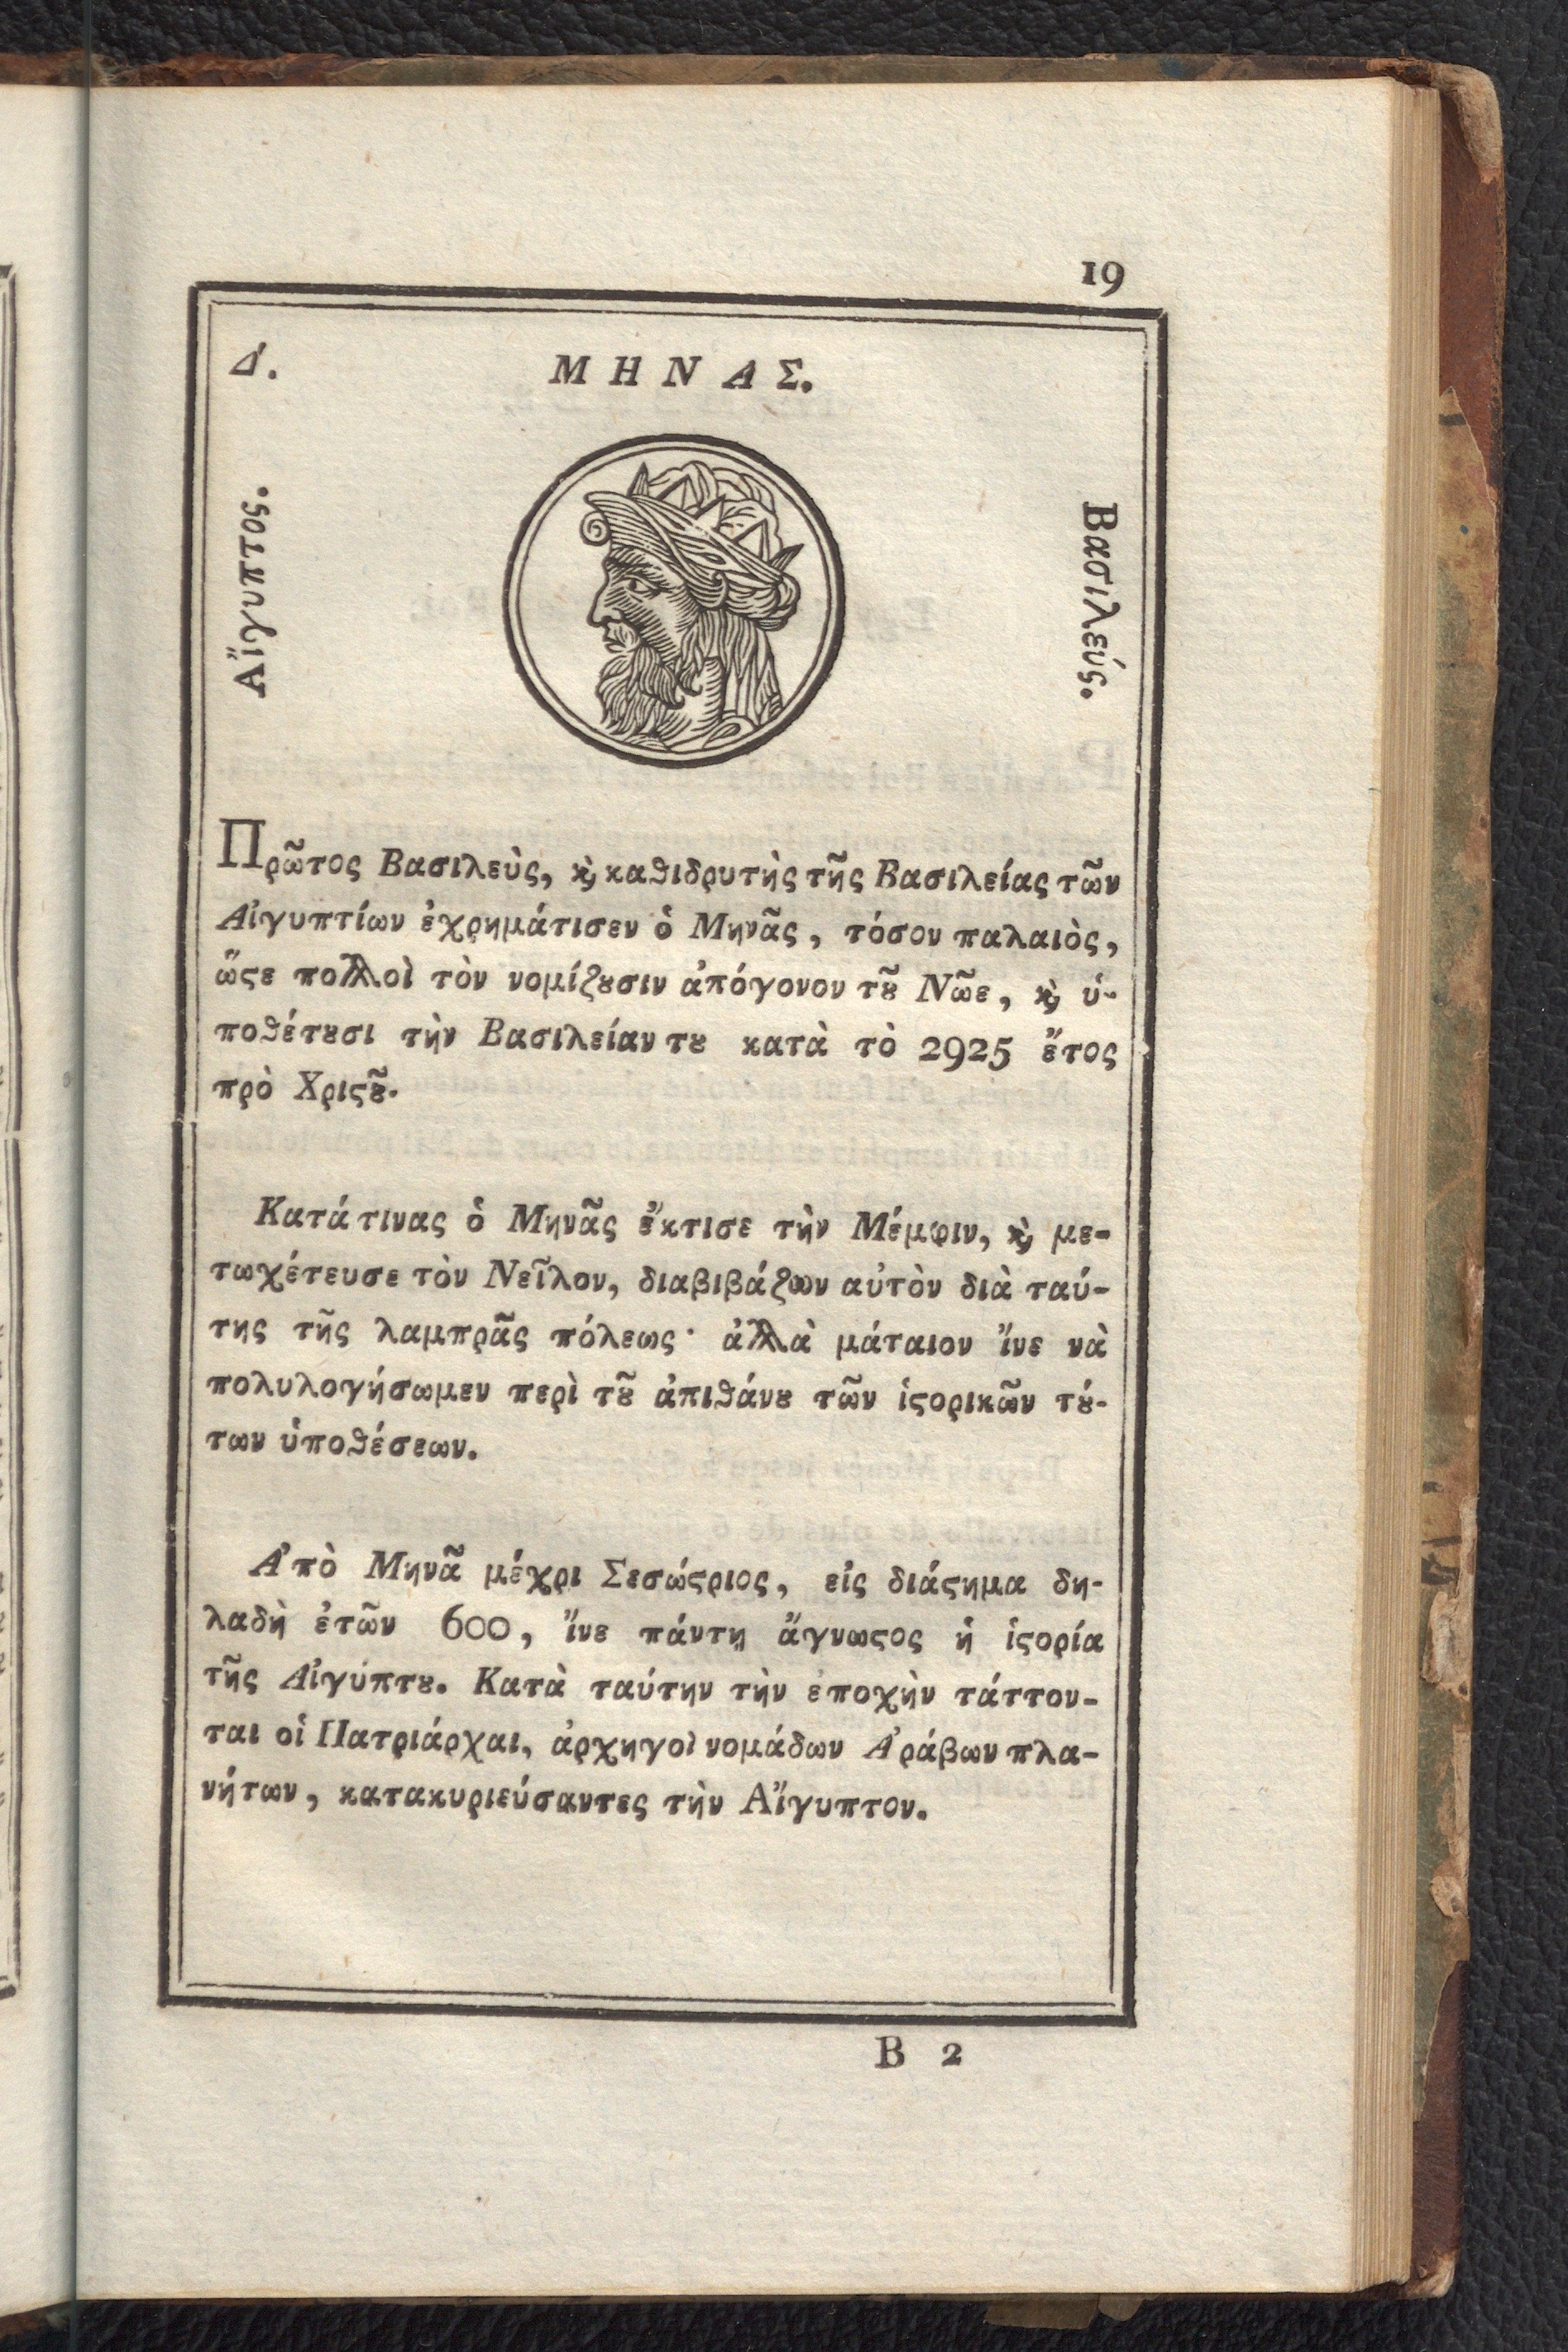 19
Δ'.
ΜΗΝΑΣ.
Αἴγυπτος.
Βασιλεύς.
Πρῶτος Βασιλεὺς, ϗ̀ καθιδρυτὴς τῆς Βασιλείας τῶν
Αἰγυπτίων ἐχρημάτισεν ὁ Μηνᾶς, τόσον παλαιὸς,
ὥϛε πολλοὶ τὸν νομίζȣσιν ἀπόγονον τȣ͂ Νῶε, ϗ̀ ὑ-
ποθέτȣσι τὴν Βασιλείαν τȣ κατὰ τὸ 2925 ἔτος
πρὸ Χριϛȣ͂.
Κατά τινας ὁ Μηνᾶς ἔκτισε τὴν Μέμφιν, ϗ̀ με-
τωχέτευσε τὸν Νεῖλον, διαβιβάζων αὐτὸν διὰ ταύ-
της τῆς λαμπρᾶς πόλεως· ἀλλὰ μάταιον ἴνε νὰ
πολυλογήσωμεν περὶ τȣ͂ ἀπιθάνȣ τῶν ἱϛορικῶν τȣ́-
των ὑποθέσεων.
Ἀπὸ Μηνᾶ μέχρι Σεσώϛριος, εἰς διάϛημα δη-
λαδὴ ἐτῶν 600, ἴνε πάντῃ ἄγνωϛος ἡ ἱϛορία
τῆς Αἰγύπτȣ. Κατὰ ταύτην τὴν ἐποχὴν τάττον-
ται οἱ Πατριάρχαι, ἀρχηγοὶ νομάδων Ἀράβων πλα-
νήτων, κατακυριεύσαντες τὴν Αἴγυπτον.
B 2